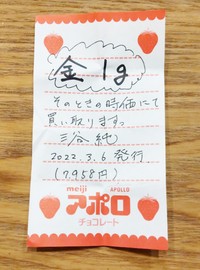 金 1g
そのときの時価にて
買い取ります。
三谷 純
2022.3.6 発行
(7958円)
meiji APOLLO
アポロ
チョコレート